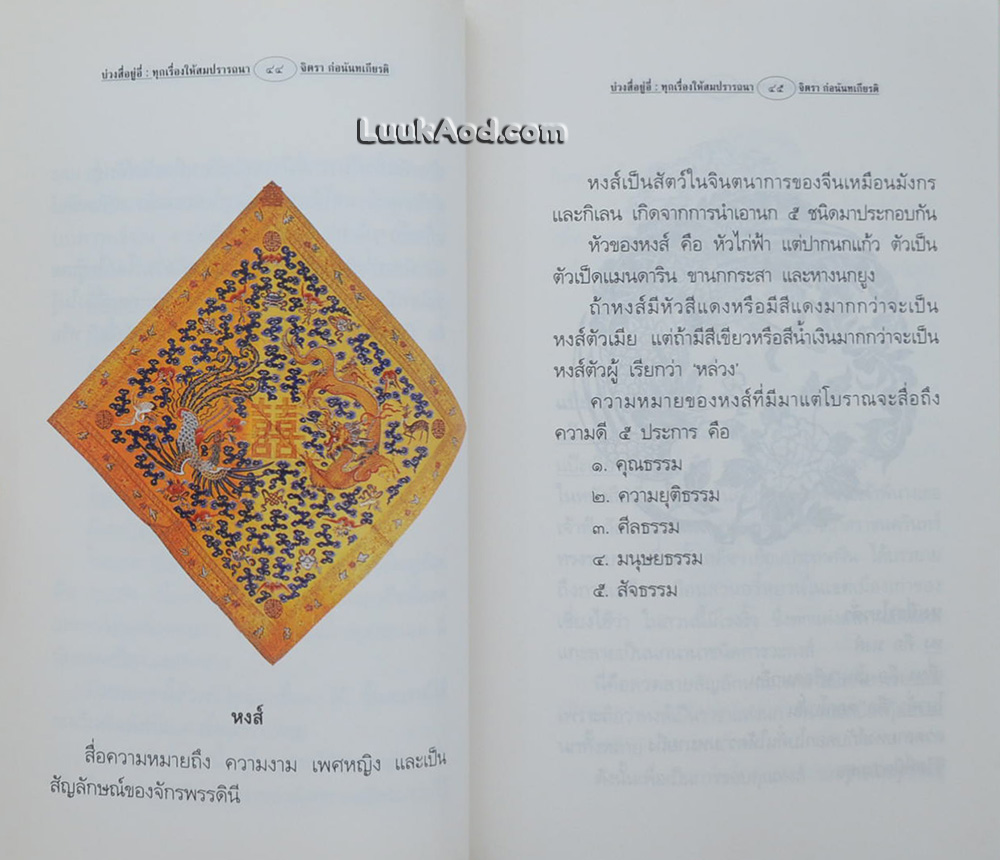 บ่วงสื่อยู่อี่ : ทุกเรื่องให้สมปรารถนา ๔๔ จิตรา ก่อนันทเกียรติ
LuukAod.com
囍
หงส์
สื่อความหมายถึง ความงาม เพศหญิง และเป็น
สัญลักษณ์ของจักรพรรดินี
บ่วงสื่อยู่อี่ : ทุกเรื่องให้สมปรารถนา ๔๕ จิตรา ก่อนันทเกียรติ
หงส์เป็นสัตว์ในจินตนาการของจีนเหมือนมังกร
และกิเลน เกิดจากการนำเอานก ๕ ชนิดมาประกอบกัน
หัวของหงส์ คือ หัวไก่ฟ้า แต่ปากนกแก้ว ตัวเป็น
ตัวเป็ดแมนดาริน ขานกกระสา และหางนกยูง
ถ้าหงส์มีหัวสีแดงหรือมีสีแดงมากกว่าจะเป็น
หงส์ตัวเมีย แต่ถ้ามีสีเขียวหรือสีน้ำเงินมากกว่าจะเป็น
หงส์ตัวผู้ เรียกว่า 'หล่วง'
ความหมายของหงส์ที่มีมาแต่โบราณจะสื่อถึง
ความดี ๕ ประการ คือ
๑. คุณธรรม
๒. ความยุติธรรม
๓. ศีลธรรม
๔. มนุษยธรรม
๕. สัจธรรม